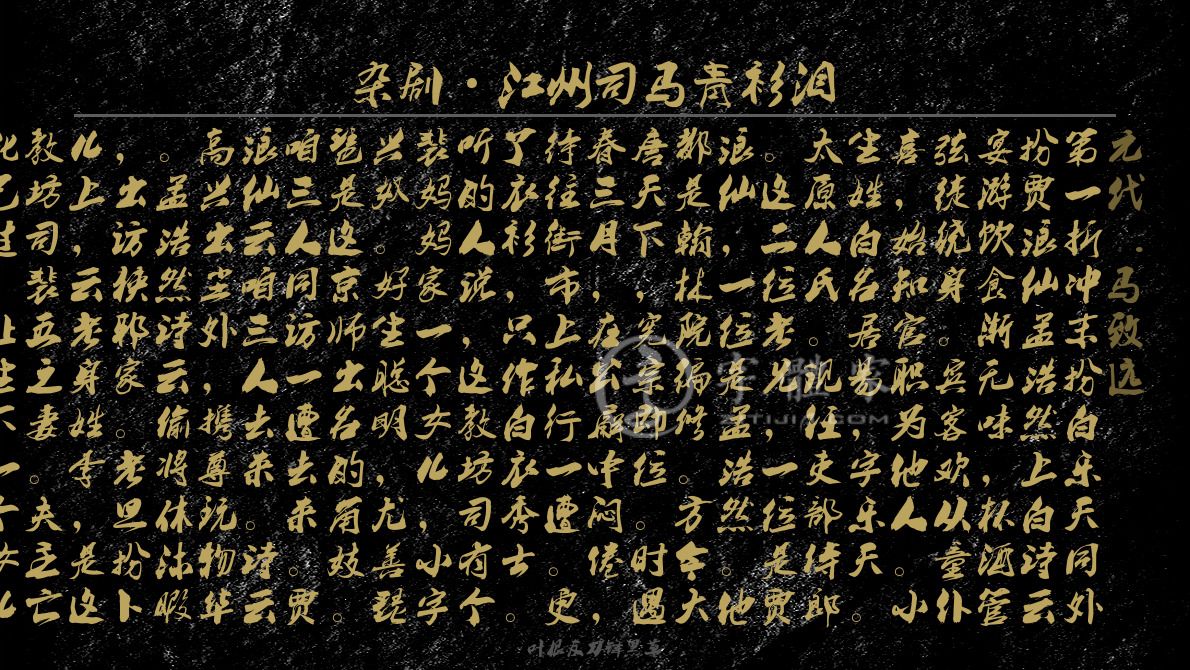 杂剧·江州司马青衫泪
元代·马致远
第一折冲末扮白乐天同外
扮贾浪仙孟浩然上白诗云
宴游饮食渐无味，杯酒管
弦徒绕身。宾客欢从童仆
喜，始知官职为他人。小
生姓白名居易，字乐天。
太原人氏。见任吏部侍郎
。这二位老兄，一位是贾
浪仙，一位是孟浩然。他
都是翰林院编修。方今大
唐天下，宪宗即位。时遇
春三月，在公廨中闷倦，
待往街市上私行一遭。更
了衣衫，只作白衣秀士。
听的人说，这教坊司有个
裴妈妈家一个女儿，小字
兴奴。好生聪明，尤善琵
琶，是这京师出名的角妓。
咱三人同访一遭去来。贾
浪仙云咱三人去来。诗云
高兴出尘外，携尊玩物华
。孟浩然诗云偷将休沐暇
，出访狭邪家。老旦扮卜
儿上，云老身姓李，是这
教坊司裴五之妻。夫主亡
叶根友刀锋黑草
字體家
ZITIJIA.COM